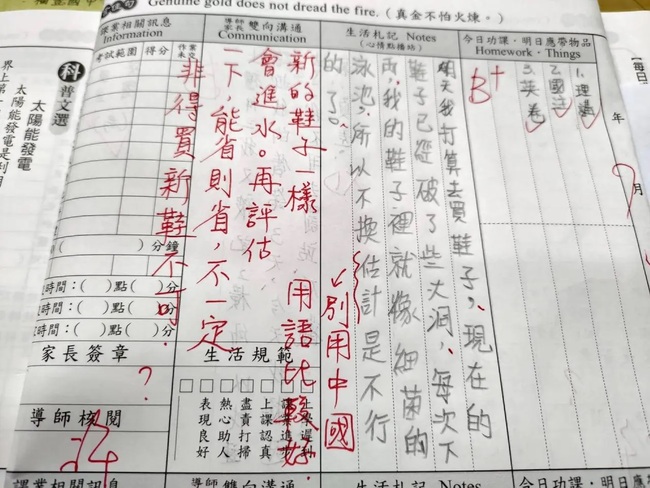 Genuine gold does not dread the fire.（真金不怕火煉。）
今日功課・明日應帶物品
Homework・Things
1.理講
2.國法
3.英卷
年
月
【每日
生活札記 Notes
(心情點播站)
B+
明天我打算去買鞋子,、現在的
鞋子已經破了些大洞,、每次下
雨,我的鞋子裡就像細菌的
泳池,所以不換估計是不行
的了。
別用中國
用語比較好.
導師家長 雙向溝通
Communication
新的鞋子一樣
會進水。再評估
一下,能省則省,不一定
非得買新鞋不可.
?
生活規範
上課認真
盡責打掃
熱心助人
表現良好
課業相關訊息
Information
考試範圍
得分
作業未交
( )分鐘
時間：( )點( )分
時間：( )點( )分
時間：( )點( )分
家長簽章
導師核閱
科普文選
太陽能發電
太陽能發電是利用
界上第一
課業相關訊息
導師 雙向溝通
生活札記 Notes
今日功課・明日應帶